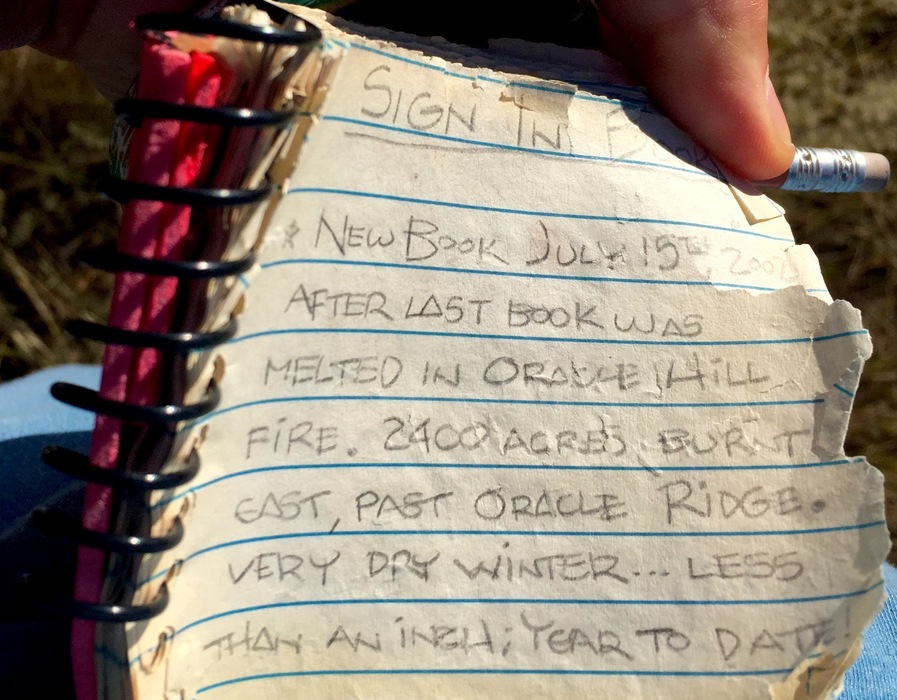 SIGN IN BOOK
* NEW BOOK JULY 15TH, 2002
AFTER LAST BOOK WAS
MELTED IN ORACLE HILL
FIRE. 2400 ACRES BURNT
EAST, PAST ORACLE RIDGE.
VERY DRY WINTER... LESS
THAN AN INCH; YEAR TO DATE!